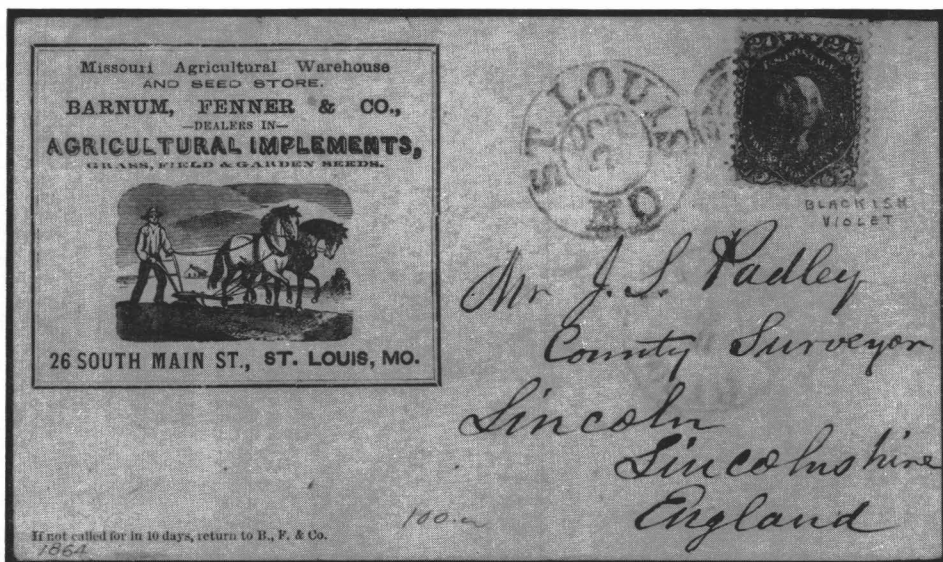 Missouri Agricultural Warehouse
AND SEED STORE.
BARNUM, FENNER & CO.,
—DEALERS IN—
AGRICULTURAL IMPLEMENTS,
GRASS, FIELD & GARDEN SEEDS.
26 SOUTH MAIN ST., ST. LOUIS, MO.
ST LOUIS MO
OCT
24 24
BLACKISH
VIOLET
Mr J. S. Padley
County Surveyor
Lincoln
Lincolnshire
England
If not called for in 10 days, return to B., F. & Co.
1864